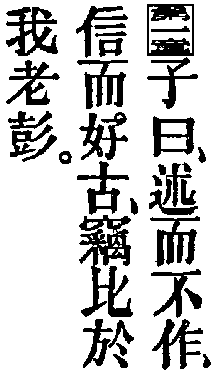 第一章子曰、述而不作、
信而好古、竊比於
我老彭。